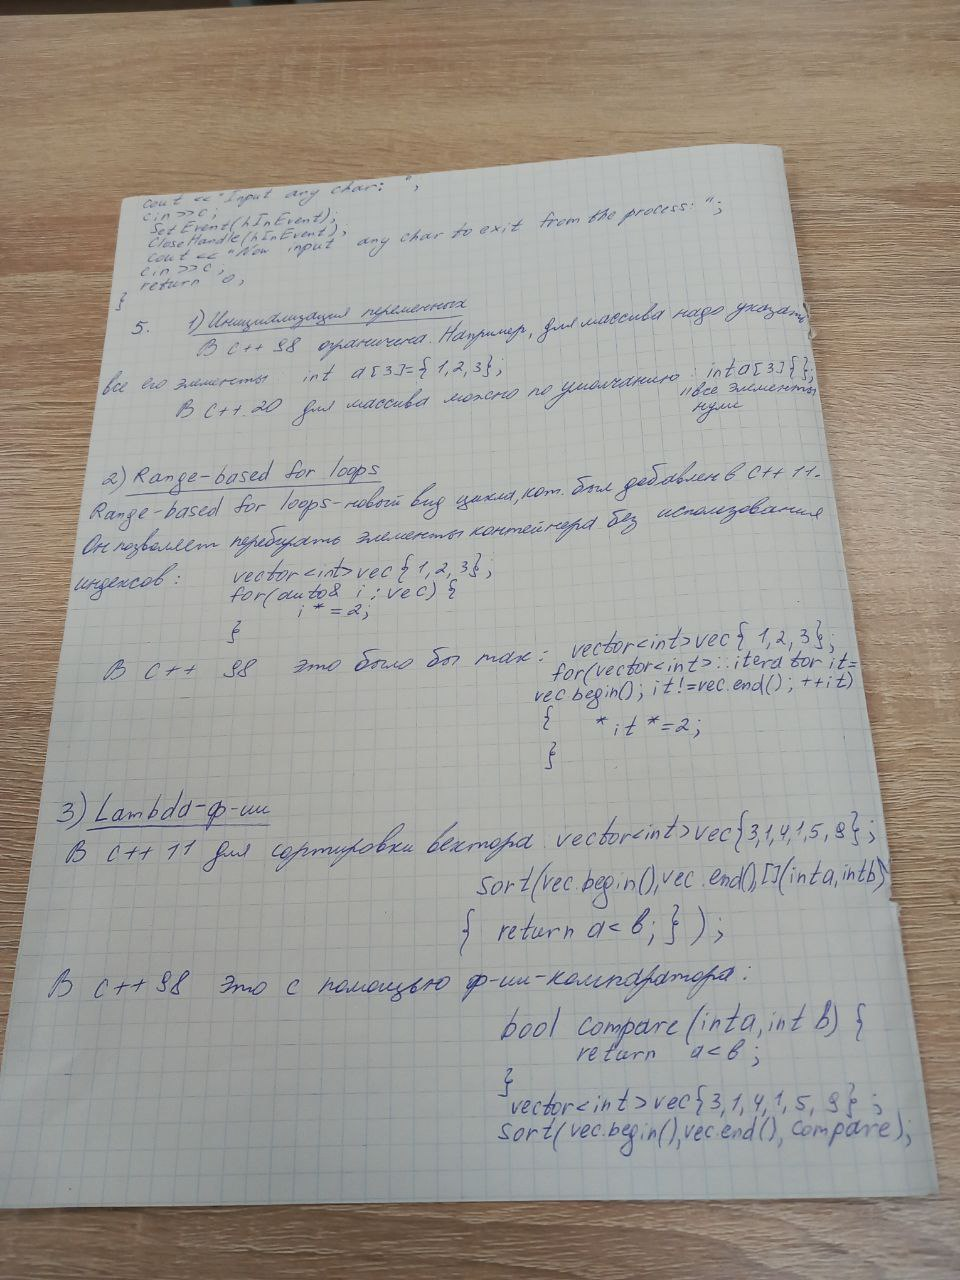 cout << "Input any char: ";
cin >> c;
SetEvent(hInEvent);
CloseHandle(hInEvent);
cout << "Now input any char to exit from the process: ";
cin >> c;
return 0;
}
5. 1) Инициализация переменных
В C++ 98 ограничена. Например, для массива надо указать
все его элементы: int a[3]={1,2,3};
В C++ 20 для массива можно по умолчанию: int a[3]{};
//все элементы
нули
2) Range-based for loops
Range-based for loops - новый вид цикла, кот. был добавлен в C++ 11.
Он позволяет перебирать элементы контейнера без использования
индексов: vector<int> vec{1,2,3};
for(auto& i : vec) {
i *= 2;
}
В C++ 98 это было бы так: vector<int> vec{1,2,3};
for(vector<int>::iterator it=
vec.begin(); it!=vec.end(); ++it)
{ *it *=2;
}
3) Lambda-ф-ии
В C++ 11 для сортировки вектора: vector<int> vec{3,1,4,1,5,9};
sort(vec.begin(),vec.end(),[](int a,int b)
{ return a< b; } );
В C++98 это с помощью ф-ии-компаратора:
bool compare(int a, int b) {
return a<b;
}
vector<int> vec{3,1,4,1,5,9};
sort(vec.begin(),vec.end(), compare);